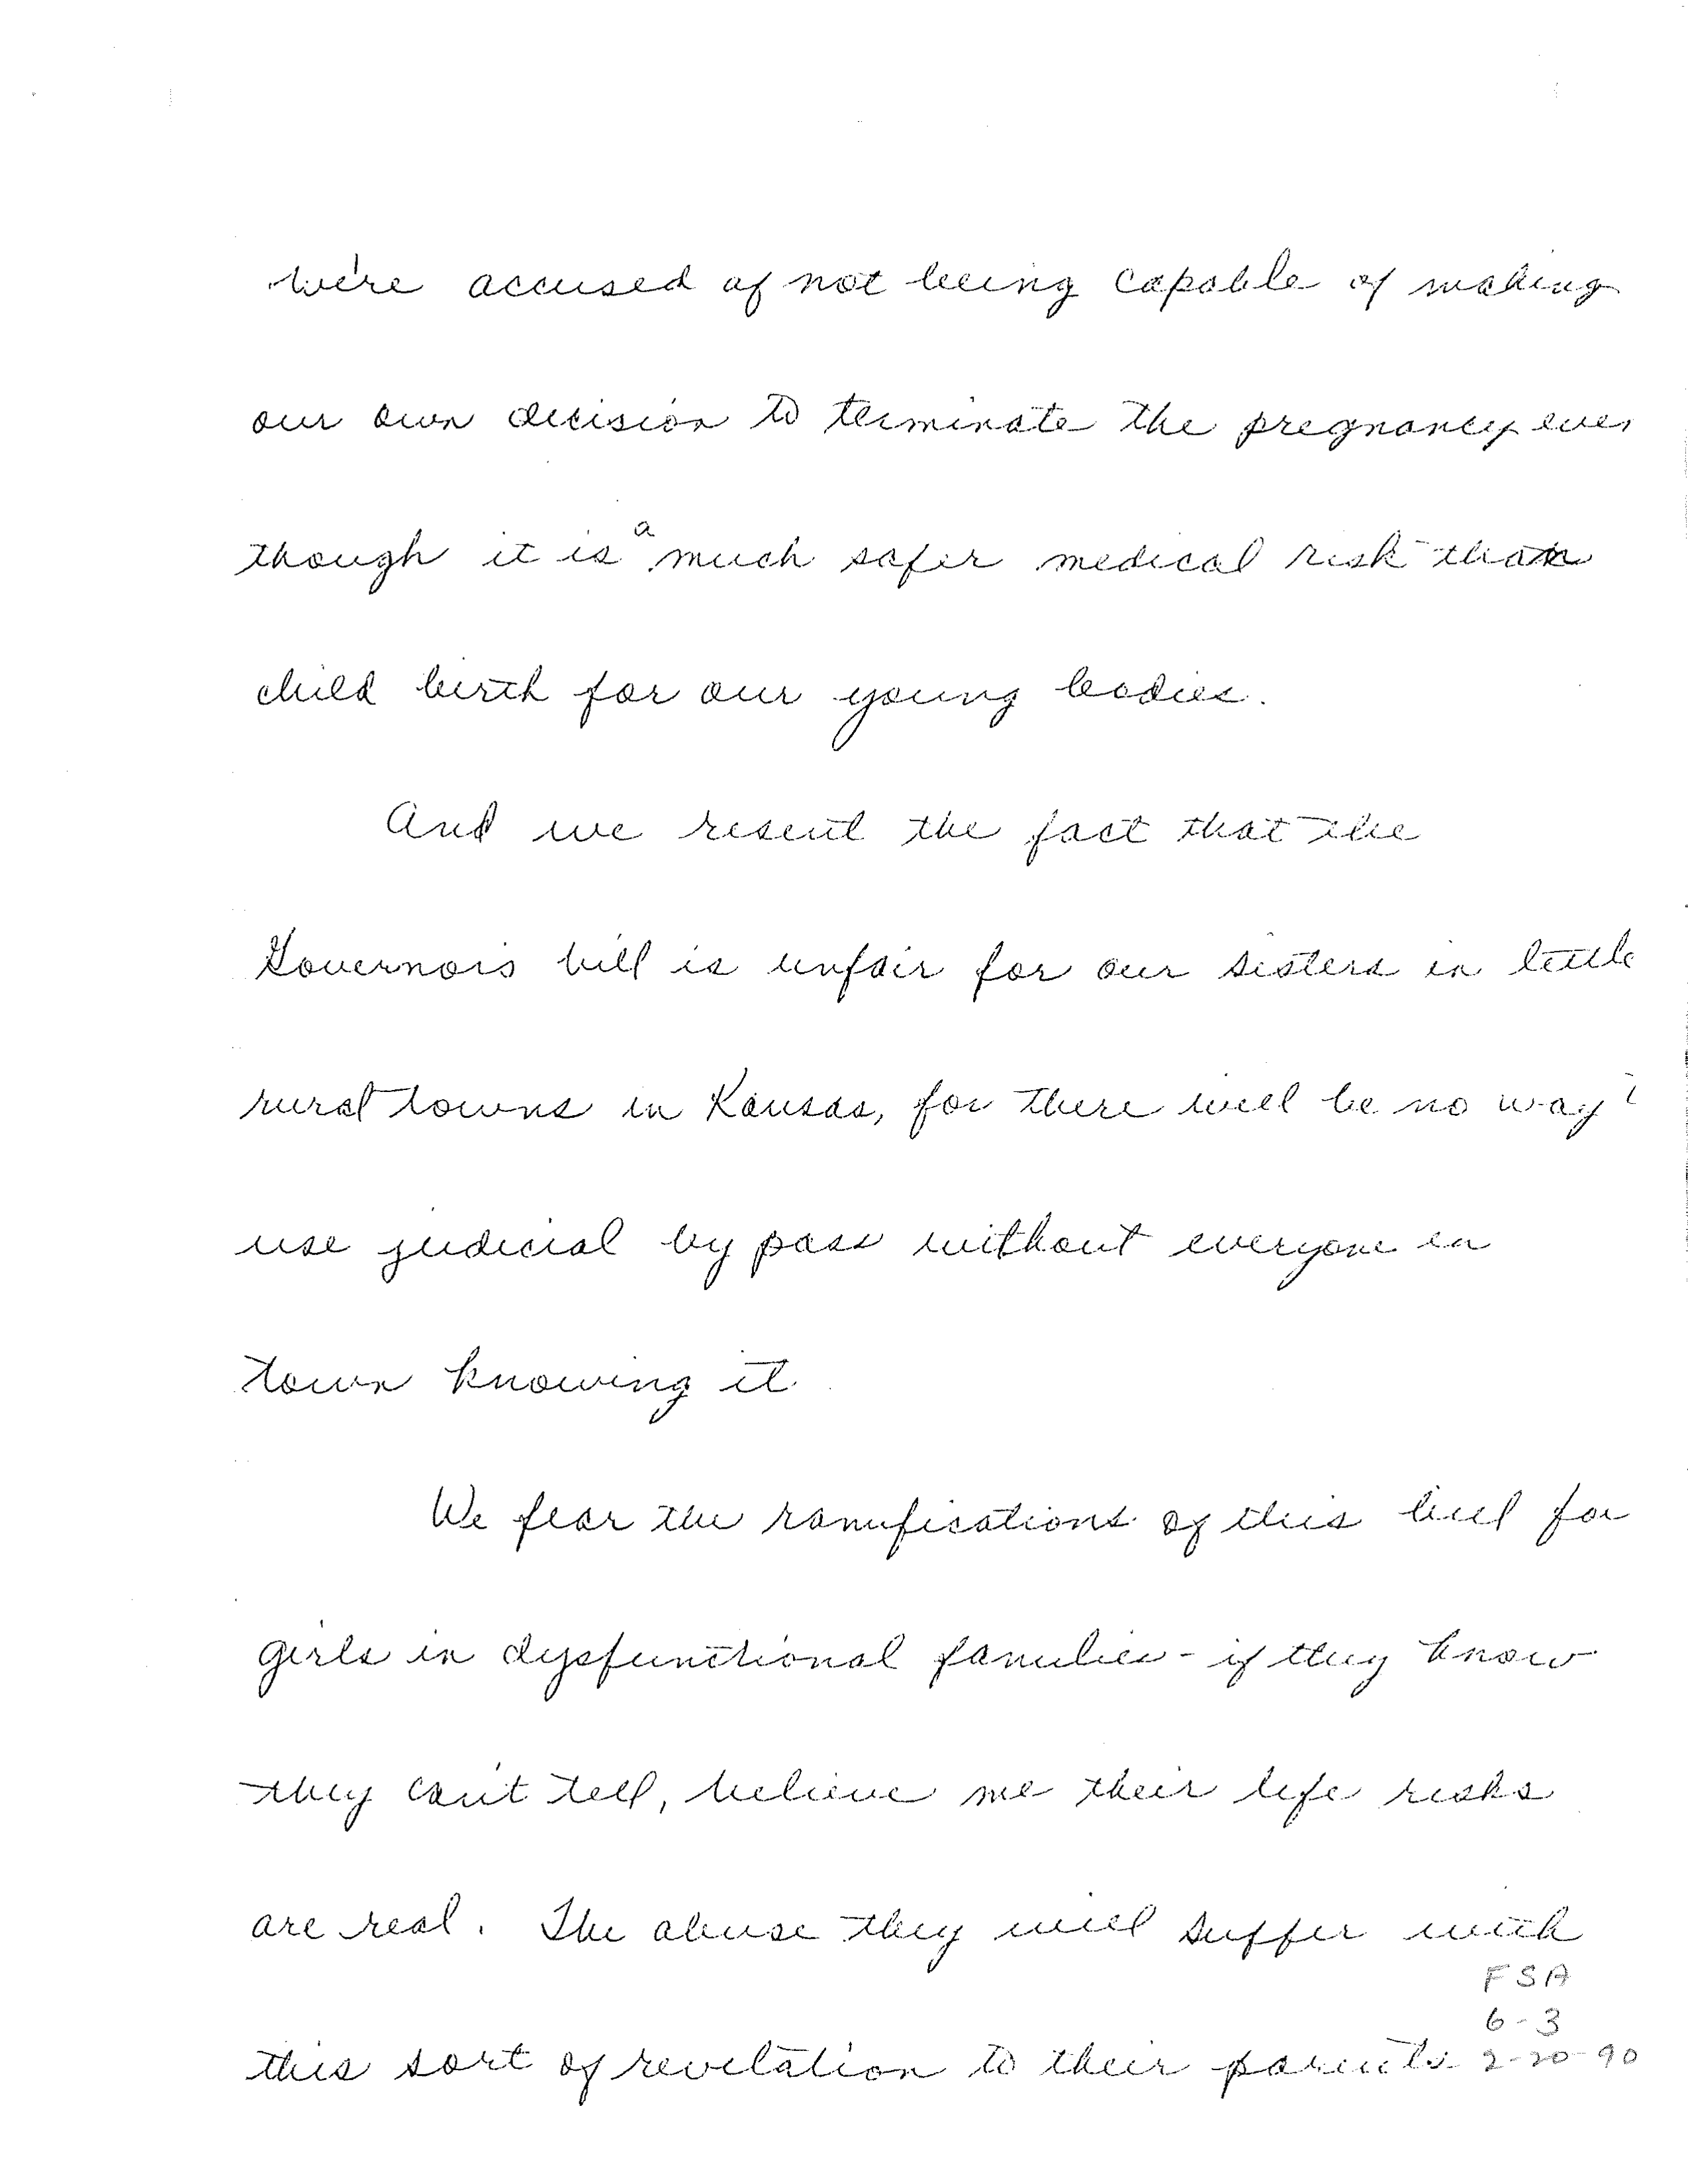 we're accused of not being capable of making
our own decision to terminate the pregnancy even
though it is a much safer medical risk than
child birth for our young bodies.
And we resent the fact that the
Governor's bill is unfair for our sisters in little
rural towns in Kansas, for there will be no way
use judicial by pass without everyone in
town knowing it.
We fear the ramifications of this bill for
girls in dysfunctional families - if they know
they can't tell, believe me their life risks
are real. The abuse they will suffer with
FSA
6-3
this sort of revelation to their parents 2-20-90